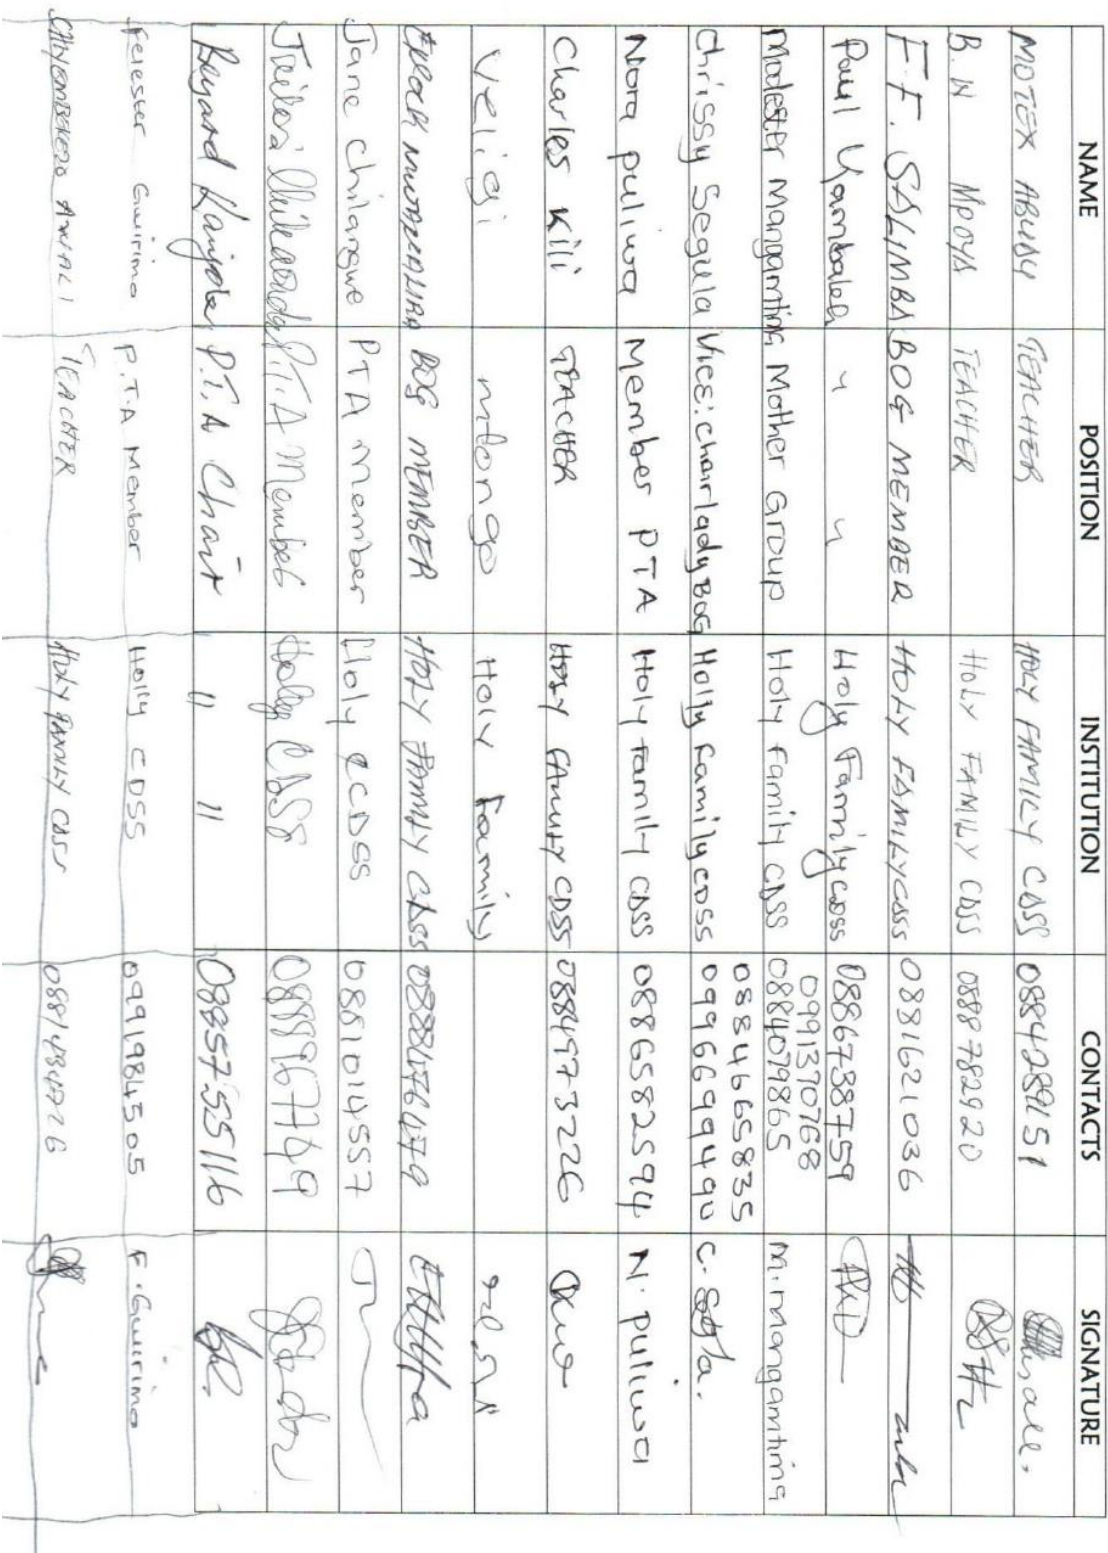 NAME POSITION INSTITUTION CONTACTS SIGNATURE
MOTEX ABUDU TEACHER HOLY FAMILY CDSS 0884289151
B.N MPOYA TEACHER HOLY FAMILY CDSS 0888782920
F.F. SALIMBA BOG MEMBER HOLY FAMILY CDSS 0881621036
Paul Yambalea " " Holy Family CDSS 0886738759
Modester Mangamtima Mother Group Holy Family CDSS 0991370768
0884079865 M. mangamtima
Chrissy Segula Vice: chairlady BOG Holly Family CDSS 0884665835
0996699490
Nora puliwa Member PTA Holy Family CDSS 0886582594 N. puliwa
Charles Kili TEACHER HOLY FAMILY CDSS 0884973226
Veligi mfongo Holy Family
BOG MEMBER HOLY FAMILY CDSS
Jane Chilangwe PTA Member Holy CDSS 0881014557
P.T.A Member Holy CDSS
P.T.A Chair " " 0885755116
Felester Gwirima P.T.A Member Holly CDSS 0991984505 F. Gwirima
TEACHER HOLY FAMILY CDSS